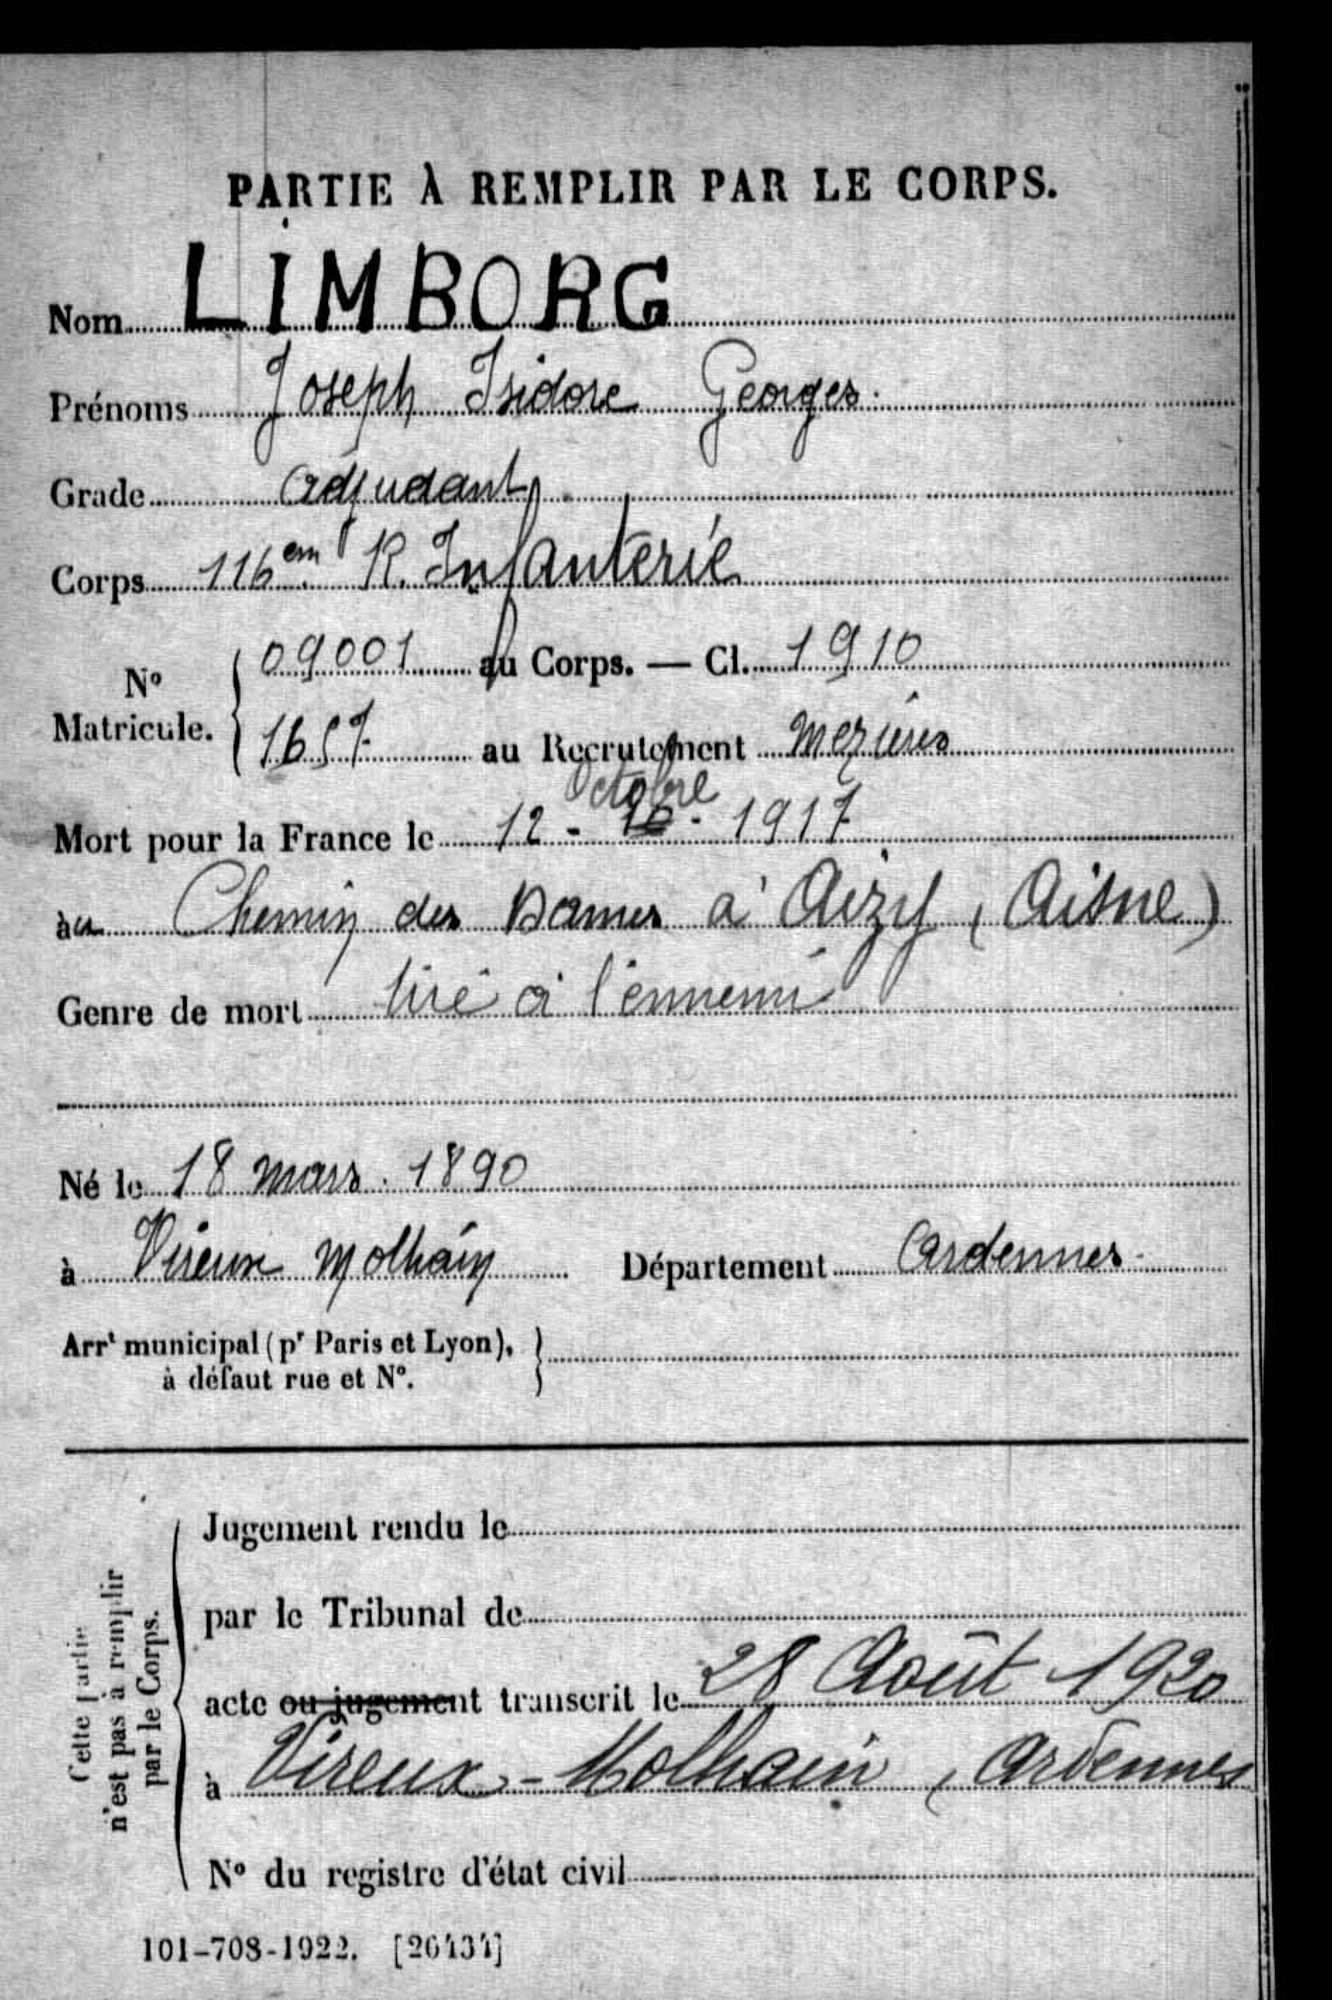 PARTIE À REMPLIR PAR LE CORPS.
Nom LIMBORG
Prénoms Joseph Isidore Georges.
Grade adjudant
Corps 116em R. Infanterie
No Matricule. { 09001 au Corps. — Cl. 1910
1657 au Recrutement Mezières
Octobre
Mort pour la France le 12 - 10 - 1917
au Chemin des Dames à Aizy (Aisne)
Genre de mort tué à l'ennemi
Né le 18 mars. 1890
à Vireux Molhain Département Ardennes
Arrt municipal (pr Paris et Lyon), }
à défaut rue et No.
Cette partie
n'est pas à remplir
par le Corps.
Jugement rendu le
par le Tribunal de
acte ou jugement transcrit le 28 Août 1920
à Vireux-Molhain, Ardennes
No du registre d'état civil
101-708-1922. [26434]